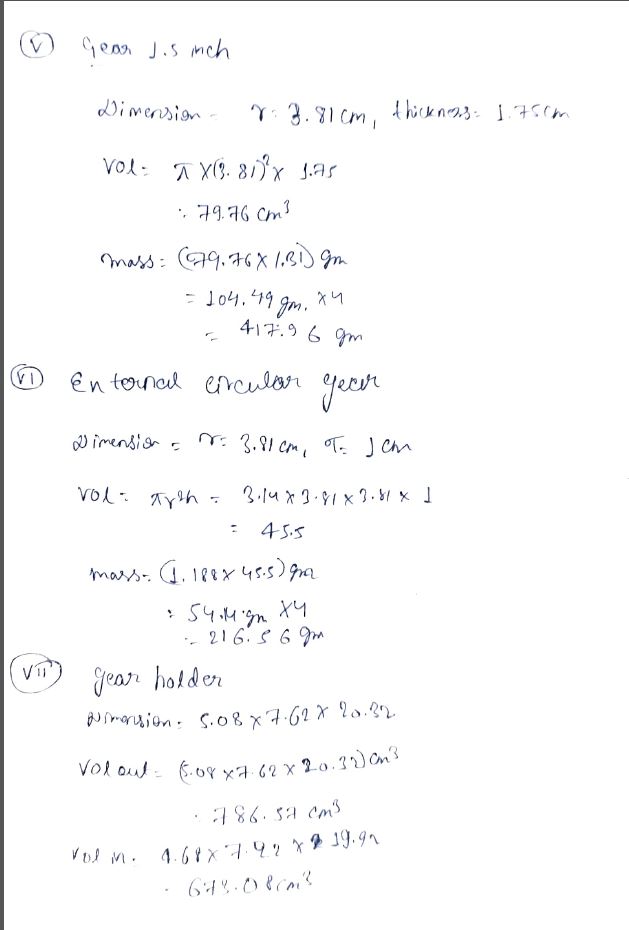 (V) Gear 1.5 inch
Dimension - r: 3.81 cm, thickness: 1.75cm
Vol = π X(3.81)² x 1.75
∴ 79.76 cm³
mass = (79.76 X 1.31) gm
= 104.49 gm. x4
= 417.96 gm
(VI) External circular gear
Dimension = r= 3.81 cm, T= 1 cm
Vol = πr²h = 3.14 x 3.81 x 3.81 x 1
= 45.5
mass = (1.188 x 45.5) gm
: 54.14 gm x4
= 216.56 gm
(VII) gear holder
Dimension: 5.08 x 7.62 x 20.32
Vol out = (5.08 x 7.62 x 20.32) cm³
. 786.57 cm³
Vol in = 4.68 x 7.42 x 19.92
- 673.08 cm³